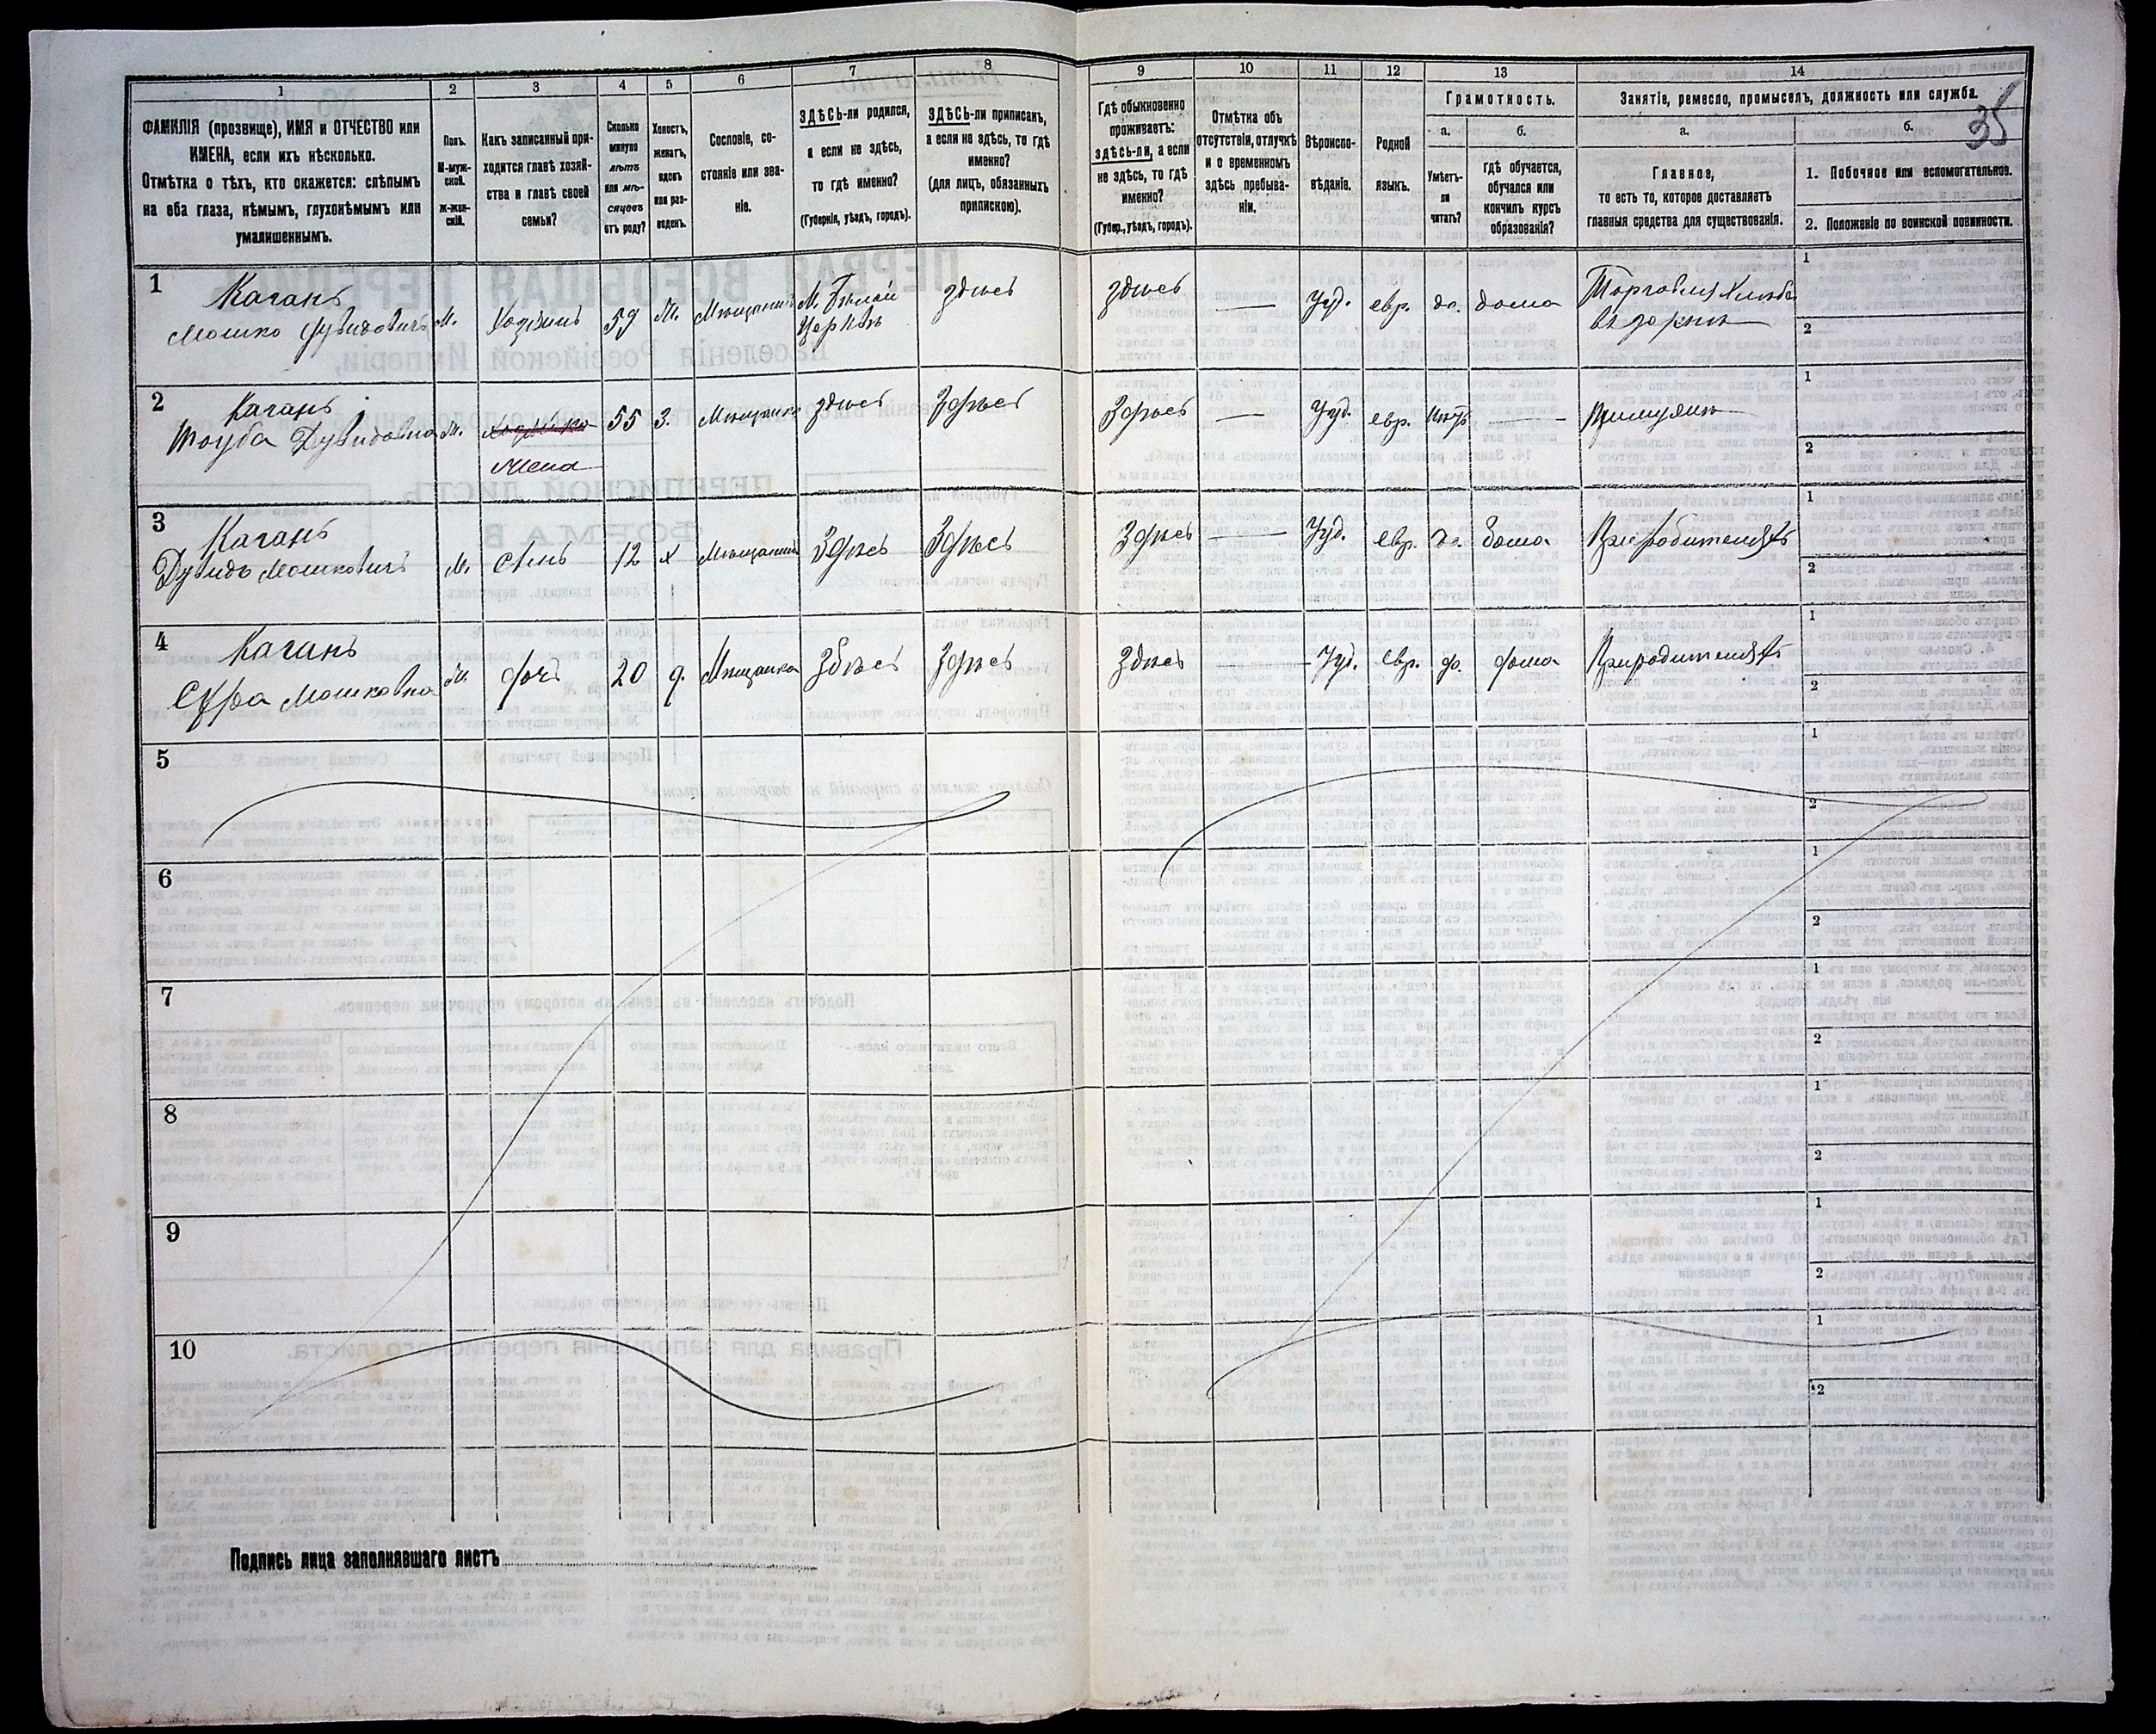 1 2 3 4 5 6 7 8 9 10 11 12 13 14
35
ФАМИЛІЯ (прозвище), ИМЯ и ОТЧЕСТВО или
ИМЕНА, если ихъ нѣсколько.
Отмѣтка о тѣхъ, кто окажется: слѣпымъ
на оба глаза, нѣмымъ, глухонѣмымъ или
умалишеннымъ.
Полъ.
М-муж-
ской.
ж-жен-
скій.
Какъ записанный при-
ходится главѣ хозяй-
ства и главѣ своей
семьи?
Сколько
минуло
лѣтъ
или мѣ-
сяцевъ
отъ роду?
Холостъ,
женатъ,
вдовъ
или раз-
веденъ.
Сословіе, со-
стояніе или зва-
ніе.
ЗДѢСЬ-ли родился,
а если не здѣсь,
то гдѣ именно?
(Губернія, уѣздъ, городъ).
ЗДѢСЬ-ли приписанъ,
а если не здѣсь, то гдѣ
именно?
(для лицъ, обязанныхъ
припискою).
Гдѣ обыкновенно
проживаетъ:
здѣсь-ли, а если
не здѣсь, то гдѣ
именно?
(Губер., уѣздъ, городъ).
Отмѣтка объ
отсутствіи, отлучкѣ
и о временномъ
здѣсь пребыва-
ніи.
Вѣроиспо-
вѣданіе.
Родной
языкъ.
Грамотность.
а.
Умѣетъ-
ли
читать?
б.
гдѣ обучается,
обучался или
кончилъ курсъ
образованія?
Занятіе, ремесло, промыселъ, должность или служба.
а.
Главное,
то есть то, которое доставляетъ
главныя средства для существованія.
б.
1. Побочное или вспомогательное.
2. Положеніе по воинской повинности.
1
Каганъ
Мошко Дувидовичъ
М. Хозяинъ 59 Ж. Мѣщанинъ
М. Бѣлай
Церковь
здѣсь здѣсь — Iуд. евр. да. дома
Торговля Хлѣбо
въ зернѣ
1
2
2
Каганъ
Тоуба Дувидовна
М.
Жена
55 З. Мѣщанка здѣсь Здѣсь Здѣсь — Iуд. евр. нѣтъ —
При мужѣ
1
2
3
Каганъ
Дувидъ Мошковичъ
М. Сынъ 12 х Мѣщанинъ Здѣсь Здѣсь Здѣсь — Iуд. евр. да. дома
При родителяхъ
1
2
4
Каганъ
Сура Мошковна
М. дочь 20 д. Мѣщанка Здѣсь Здѣсь Здѣсь — Iуд. евр. да. дома
При родителяхъ
1
2
5
1
2
6
1
2
7
1
2
8
1
2
9
1
2
10
1
2
Подпись лица заполнявшаго листъ